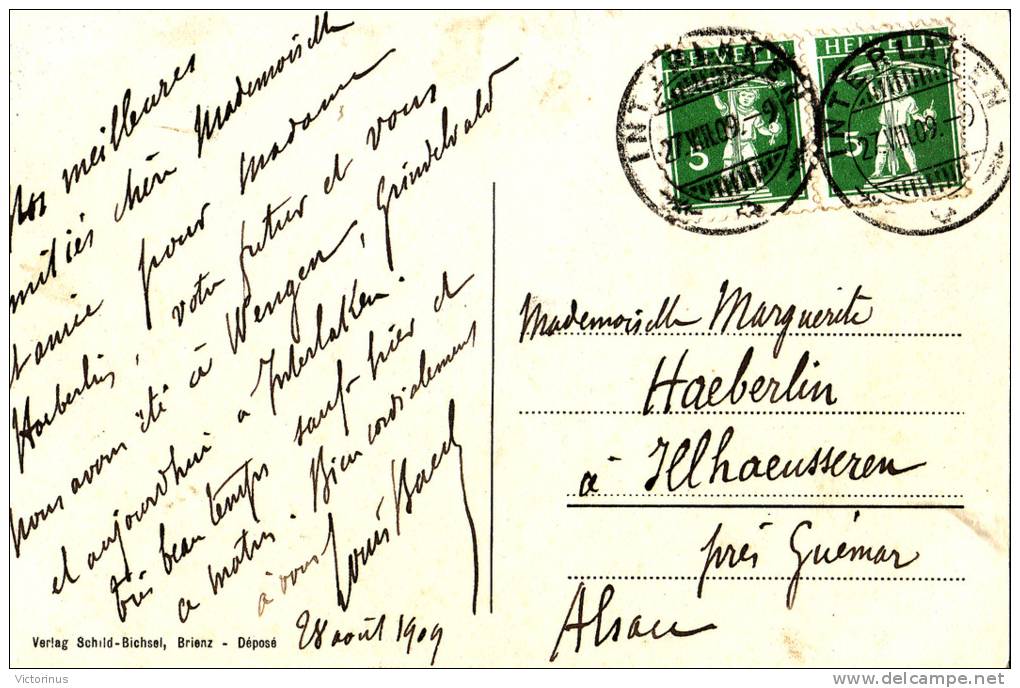 Nos meilleures
amitiés chère Mademoiselle
et amie pour Madame
Haeberlin, votre futur et vous
nous avons été à Wengen, Grindelwald
et aujourd'hui à Interlaken.
très beau temps sauf hier et
ce matin. Bien cordialement
à vous! Louis
28 août 1909
Verlag Schild-Bichsel, Brienz - Déposé
HELVETIA
5
HELVETIA
5
INTERLAKEN
27.VIII.09.-9
INTERLAKEN
27.VIII.09.-9
Mademoiselle Marguerite
Haeberlin
à Illhaeusseren
près Guémar
Alsace
Victorinus